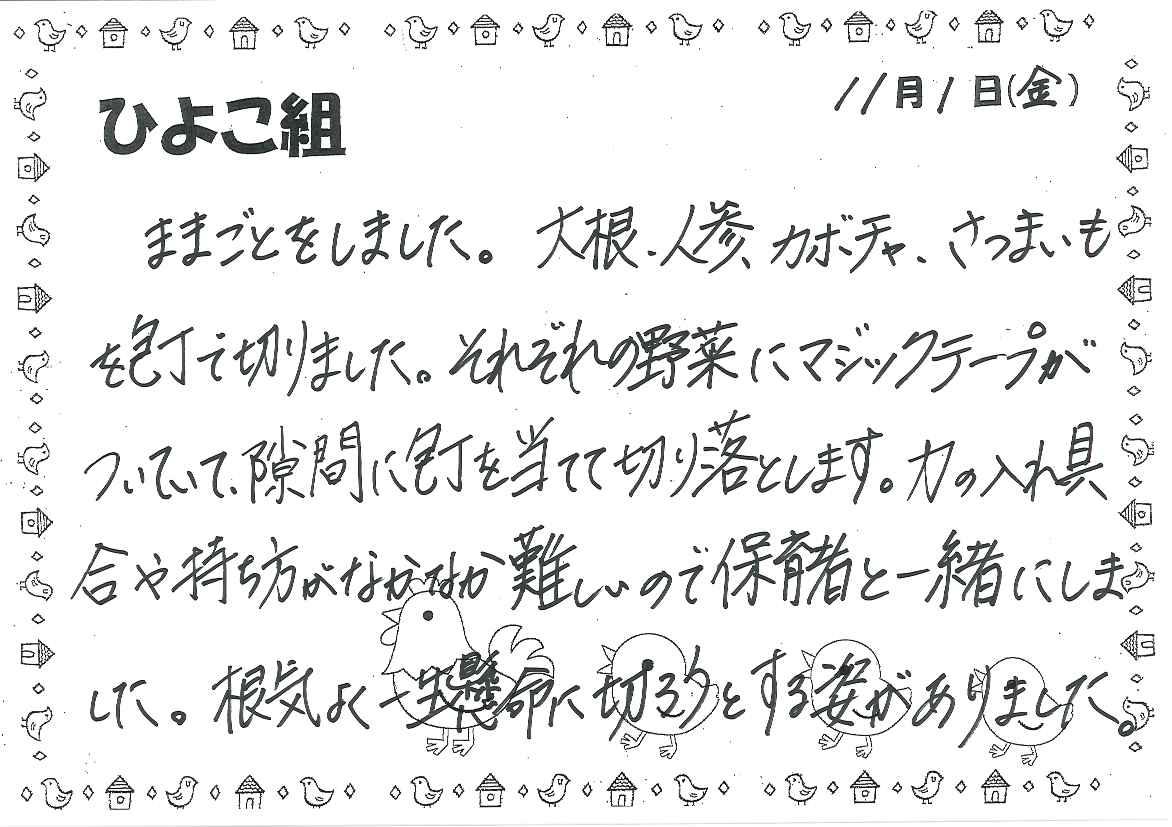 ひよこ組
11月1日(金)
ままごとをしました。大根、人参、カボチャ、さつまいも
を包丁で切りました。それぞれの野菜にマジックテープが
ついていて、隙間に包丁を当てて切り落とします。力の入れ具
合や持ち方がなかなか難しいので保育者と一緒にしま
した。根気よく一生懸命に切ろうとする姿がありました。